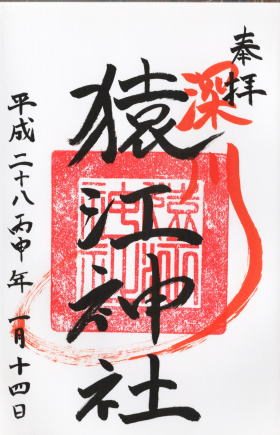 奉拝
深川
猿江神社
平成二十八丙申年一月十四日